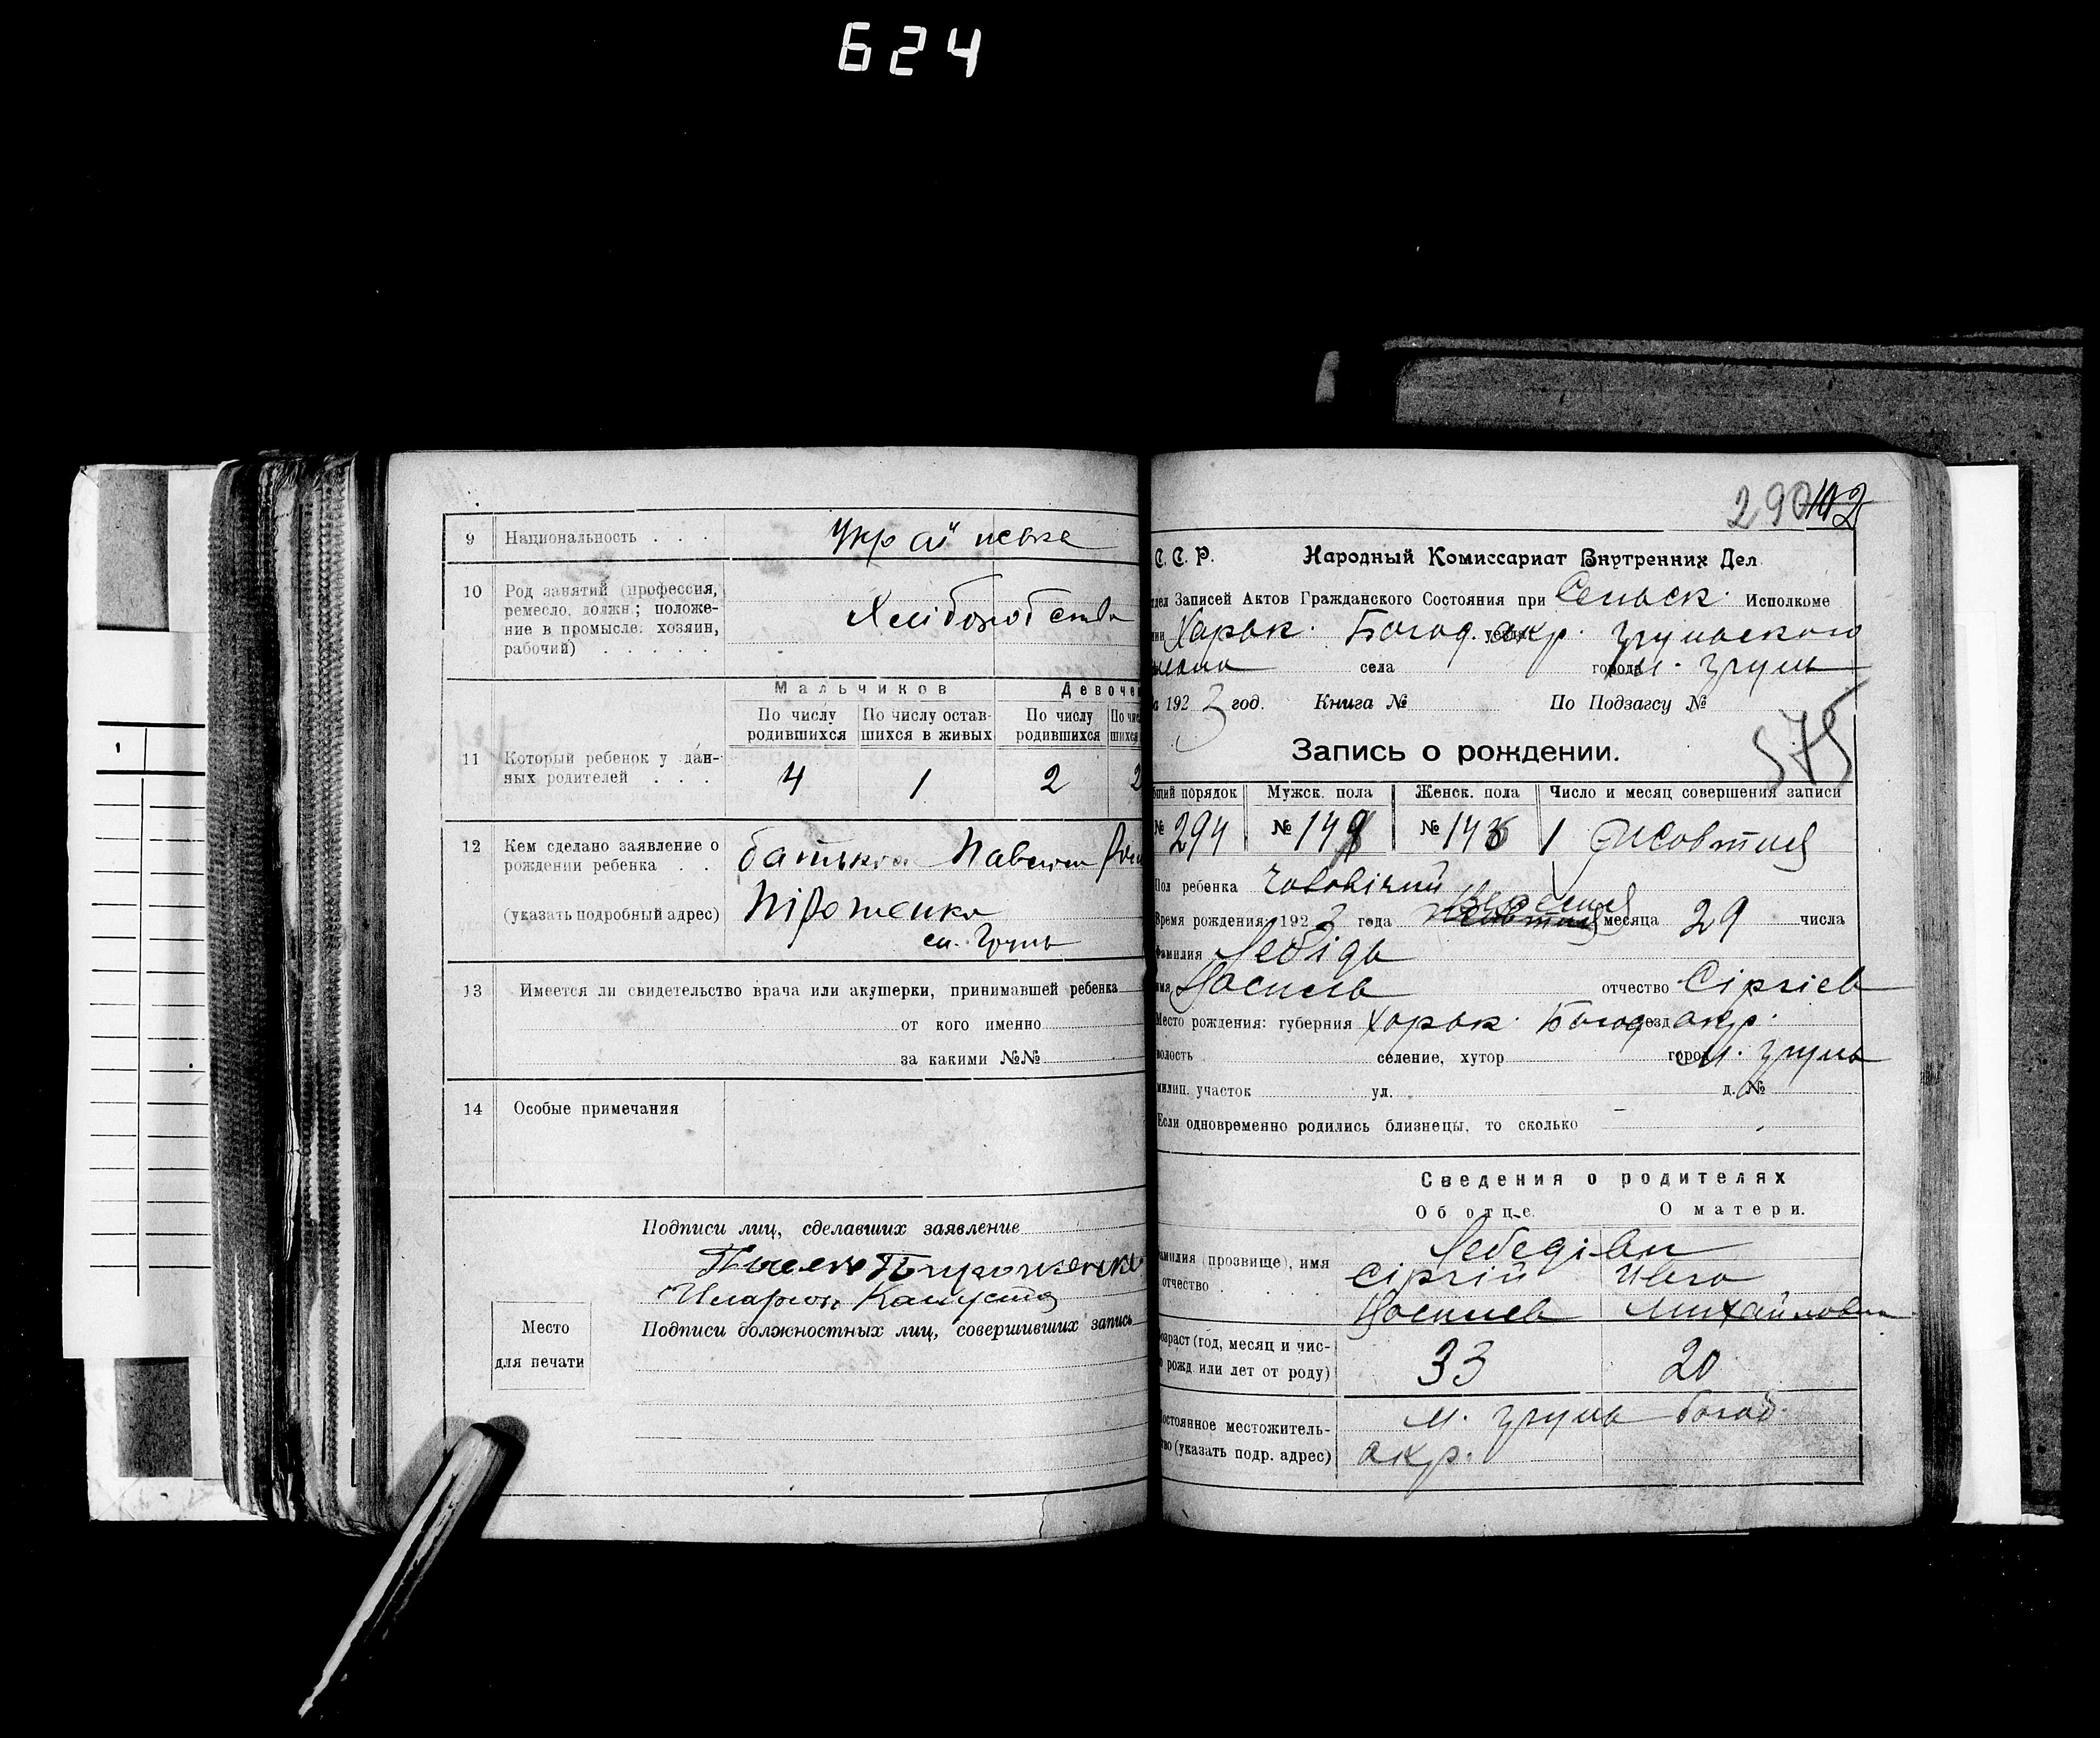 624
9 Национальность . . . Українська
10 Род занятий (профессия,
ремесло, должн.; положе-
ние в промысле: хозяин,
рабочий) . . . . . Хліборобство
Мальчиков Девочек
По числу родившихся По числу остав-шихся в живых По числу родившихся По чис
11 Который ребенок у дан-
ных родителей . . . 4 1 2 2
12 Кем сделано заявление о
рождении ребенка . . батьком
(указать подробный адрес)
13 Имеется ли свидетельство врача или акушерки, принимавшей ребенка
от кого именно
за какими №№
14 Особые примечания
Подписи лиц, сделавших заявление
Иларион Капуста
Место
для печати
Подписи должностных лиц, совершивших запись
290 102
С. С. Р. Народный Комиссариат Внутренних Дел
дел Записей Актов Гражданского Состояния при Сельск. Исполкоме
Харьк. Богод. окр. Грунського
села города м. Грунь
192 3 год. Книга № По Подзагсу №
575
Запись о рождении.
бщий порядок Мужск. пола Женск. пола Число и месяц совершения записи
№ 294 № 149 № 145 1 Жовтня
Пол ребенка Чоловічий
Время рождения: 192 3 года Вересня месяца 29 числа
Фамилия Лебідь
имя Василь отчество Сіргієв
Место рождения: губерния Харьк. Богод окр.
волость селение, хутор город м. Грунь
милиц. участок ул. д. №
Если одновременно родились близнецы, то сколько —
Сведения о родителях
Об отце. О матери.
амилия (прозвище), имя Лебедіви
отчество . . . . Сіргій
Васильев Михайловна
озраст (год, месяц и чис-
рожд или лет от роду) 33 20
остоянное местожитель- м. Грунь Богод.
во (указать подр. адрес) окр.
1